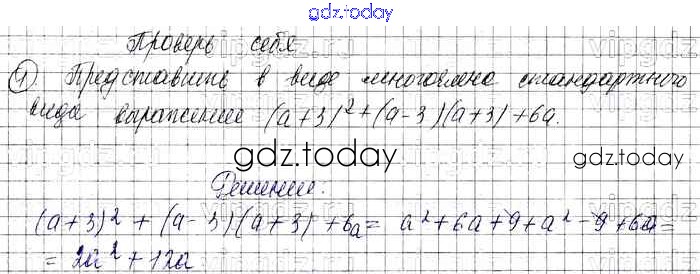 gdz.today
Проверь себя
① Представить в виде многочлена стандартного
вида выражение (a+3)² + (a-3)(a+3) + 6a.
gdz.today
gdz.today
Решение:
(a+3)² + (a-3)(a+3) + 6a = a² + 6a + 9 + a² - 9 + 6a =
= 2a² + 12a